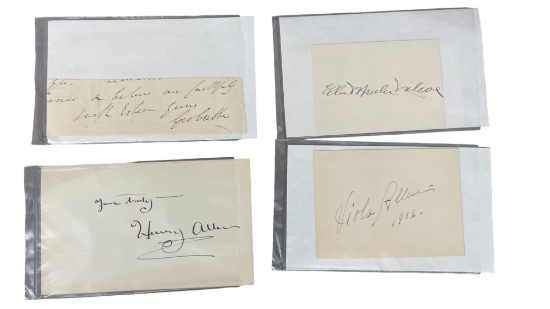 & believe me faithfully
with Esteem yours
Ella Wheeler Wilcox
Yours truly
Henry Allen
Viola Allen
1906